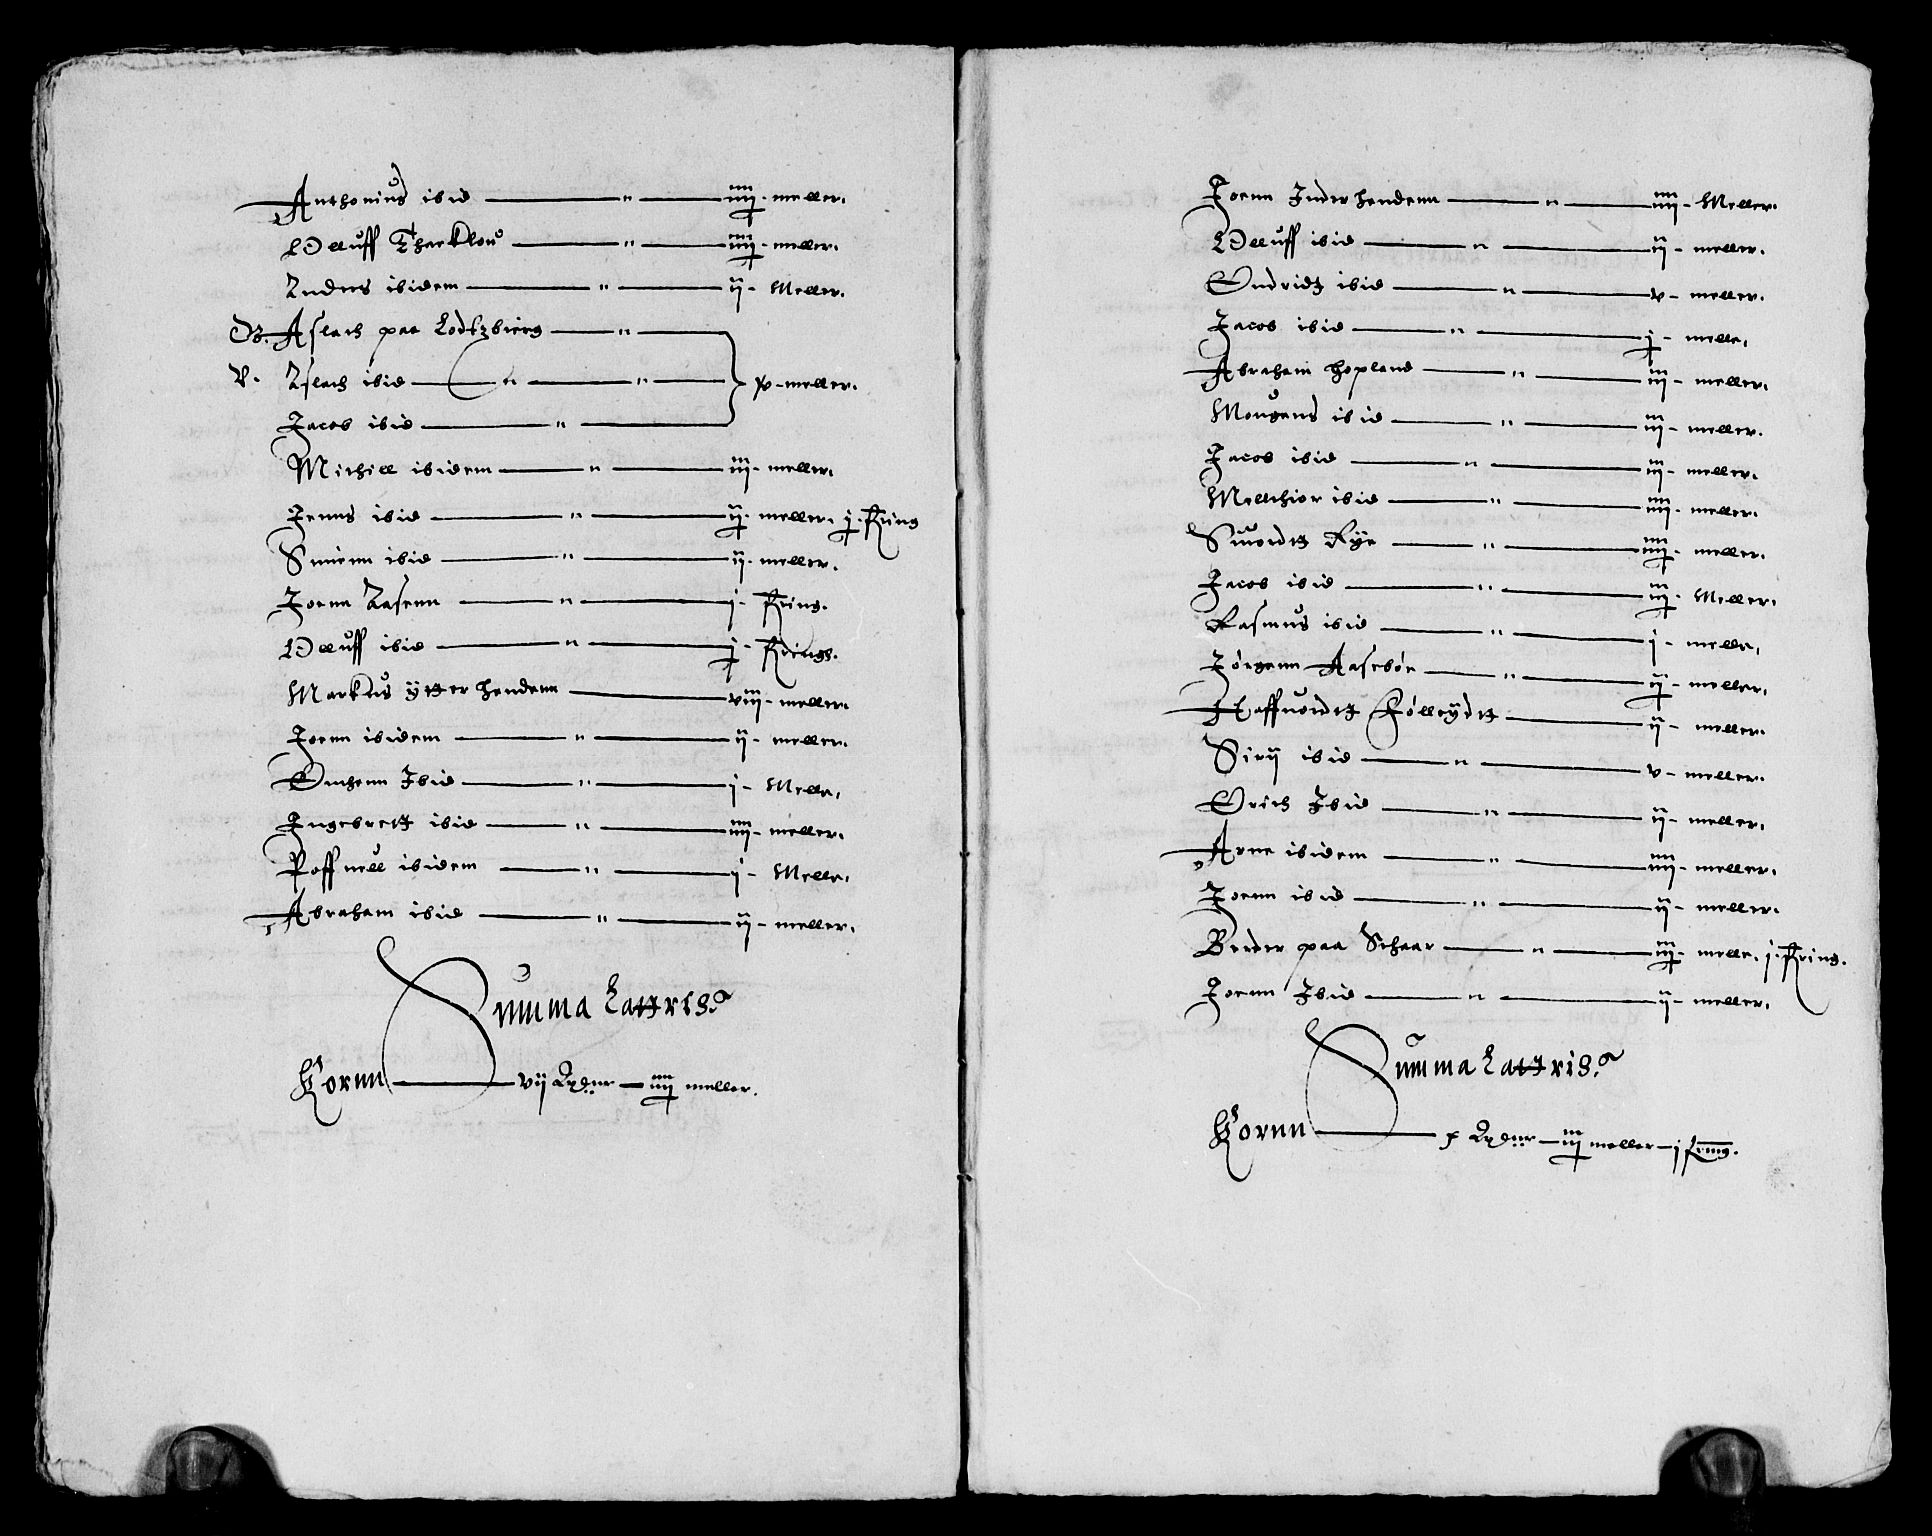 Anthonius ibid — " — iiij - meller.
Olluff Tharklou — " — iiij - meller.
Anders ibidem — " — ij - Meller.
Aslach paa Lodtzbierg — " —
V. Aslach ibid — " — " — x - meller.
Jacob ibid — " —
Michill ibidem — " — iij - meller.
Jenns ibid — " — ij - meller. j - Kring
Suienn ibid — " — ij - meller.
Joenn Aasenn — " — j - Kring.
Olluff ibid — " — j - Krings.
Markus ÿtterhendenn — viij - meller.
Joenn ibidem — " — ij - meller.
Omhenn Ibid — " — j - Melle,
Ingebrett ibid — " — iiij - meller.
Poffuell ibidem — " — j - Melle,
Abraham ibid — " — ij - meller.
Summa Lattris.
Kornn — vij — iiij meller.
Joenn Inderhendenn — " — iiij - Meller.
Olluff ibid — " — ij - meller.
Endridt ibid — " — v - meller.
Jacob ibid — " — j - melle,
Abraham Hopland — " — iij - meller.
Mougens ibid — " — iij - meller.
Jacob ibid — " — iij - meller.
Mellchior ibid — " — iiij - meller.
Siuordtt Rÿe — " — iiij - meller.
Jacob ibid — " — iij - Meller.
Rasmus ibid — " — j - melle,
Jørgenn Aasebøe — " — ij - meller.
Haffuordtt Føllesÿdtt — ij - meller.
Sirij ibid — " — v - meller.
Erich Ibid — " — ij - meller.
Arne ibidem — " — iiij - meller.
Joenn ibid — " — ij - meller.
Peeder paa Schaar — " — iij - melle. j - Kring.
Joenn Ibid — " — ij - meller.
Summa Lattris.
Kornn — x — iij meller — j kring.